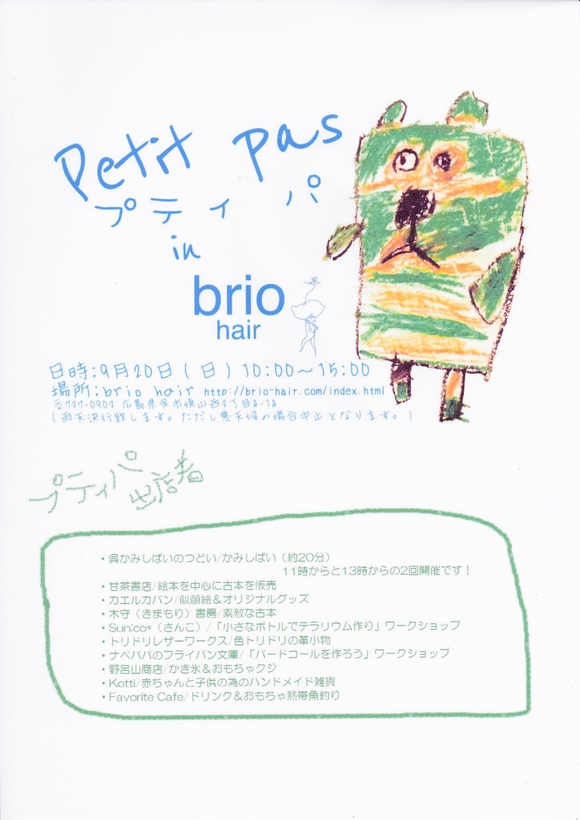 Petit pas
プティ パ
in
brio
hair
日時:9月20日(日)10:00~15:00
場所:brio hair http://brio-hair.com/index.html
〒737-0902 広島県呉市焼山西2丁目
(雨天決行致します。ただし悪天候の場合中止となります。)
プティパ
出店者
・呉かみしばいのつどい/かみしばい(約20分)
11時からと13時からの2回開催です!
・甘茶書店/絵本を中心に古本を販売
・カエルカバン/似顔絵&オリジナルグッズ
・木守(きまもり)書房/素敵な古本
・Sun;co*(さんこ)/「小さなボトルでテラリウム作り」ワークショップ
・トリドリレザーワークス/色トリドリの革小物
・ナベババのフライパン文庫/「バードコールを作ろう」ワークショップ
・野呂山商店/かき氷&おもちゃクジ
・Kotti/赤ちゃんと子供の為のハンドメイド雑貨
・Favorite Cafe/ドリンク&おもちゃ熱帯魚釣り